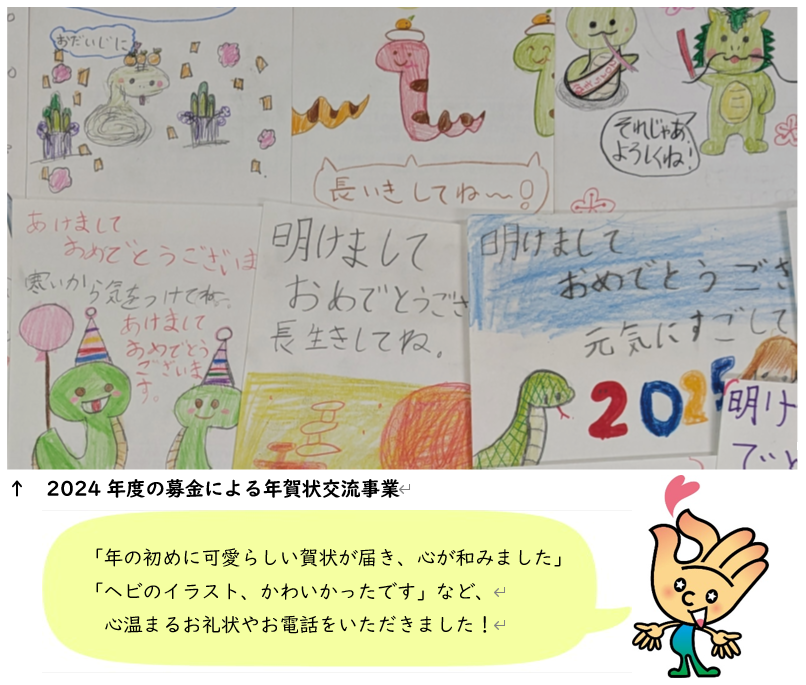 おだいじに
長いきしてね〜〜!
それじゃあ
よろしくね!
あけまして
おめでとうございま
寒いから気をつけてね。
あけまして
おめでとう
ございま
す。
明けまして
おめでとうござ
長生きしてね。
明けまして
おめでとうござ
元気にすごして
2025
明け
でと
↑ 2024年度の募金による年賀状交流事業↵
「年の初めに可愛らしい賀状が届き、心が和みました」
「ヘビのイラスト、かわいかったです」など、↵
心温まるお礼状やお電話をいただきました!↵